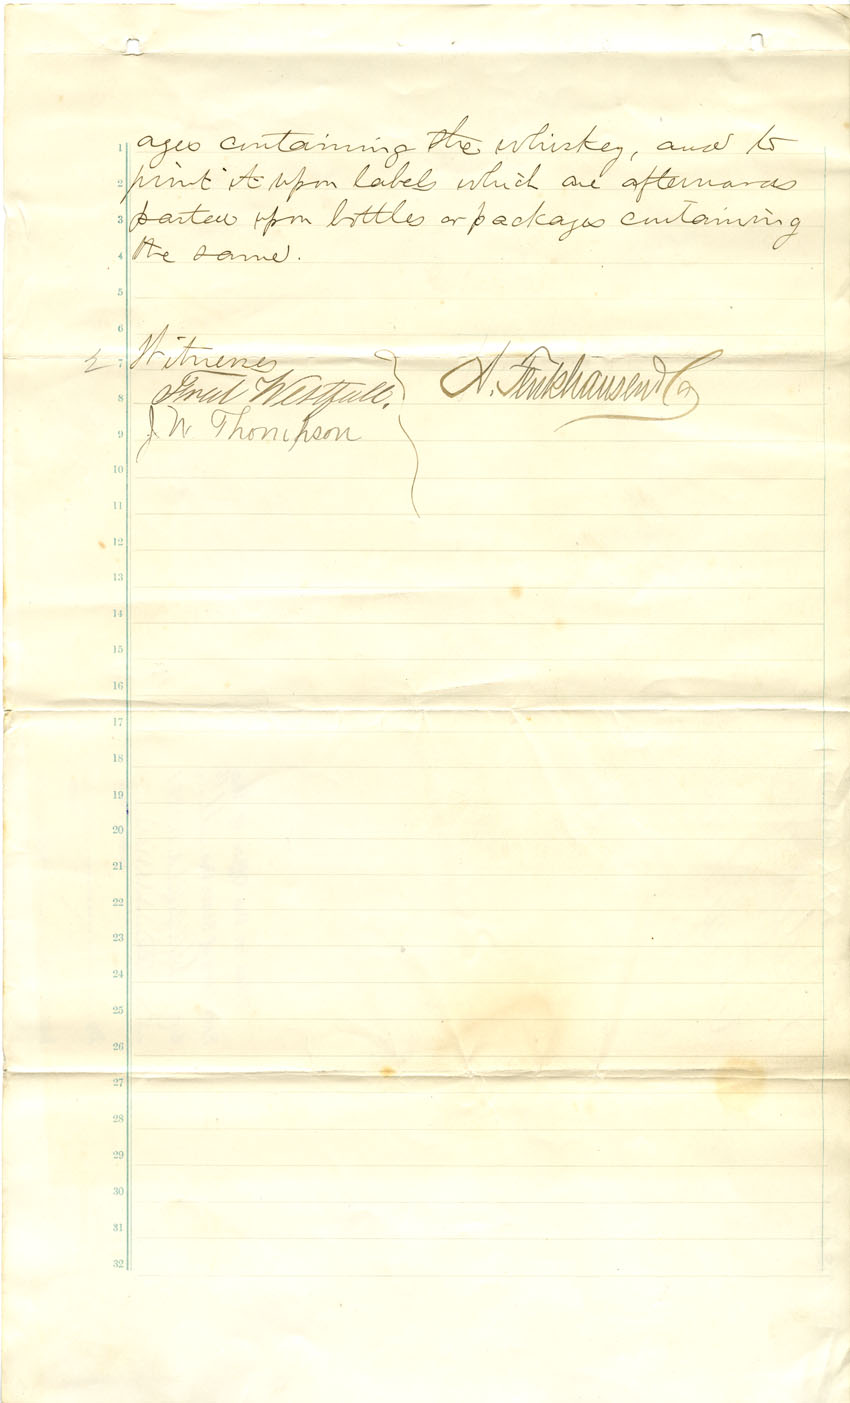 1 ages containing the whiskey, and to
2 print it upon labels which are afterwards
3 pasted upon bottles or packages containing
4 the same.
5
6
7 Witnesses
8 Fred Westfall. A. Fenkhausen & Co
9 J W Thompson
10
11
12
13
14
15
16
17
18
19
20
21
22
23
24
25
26
27
28
29
30
31
32